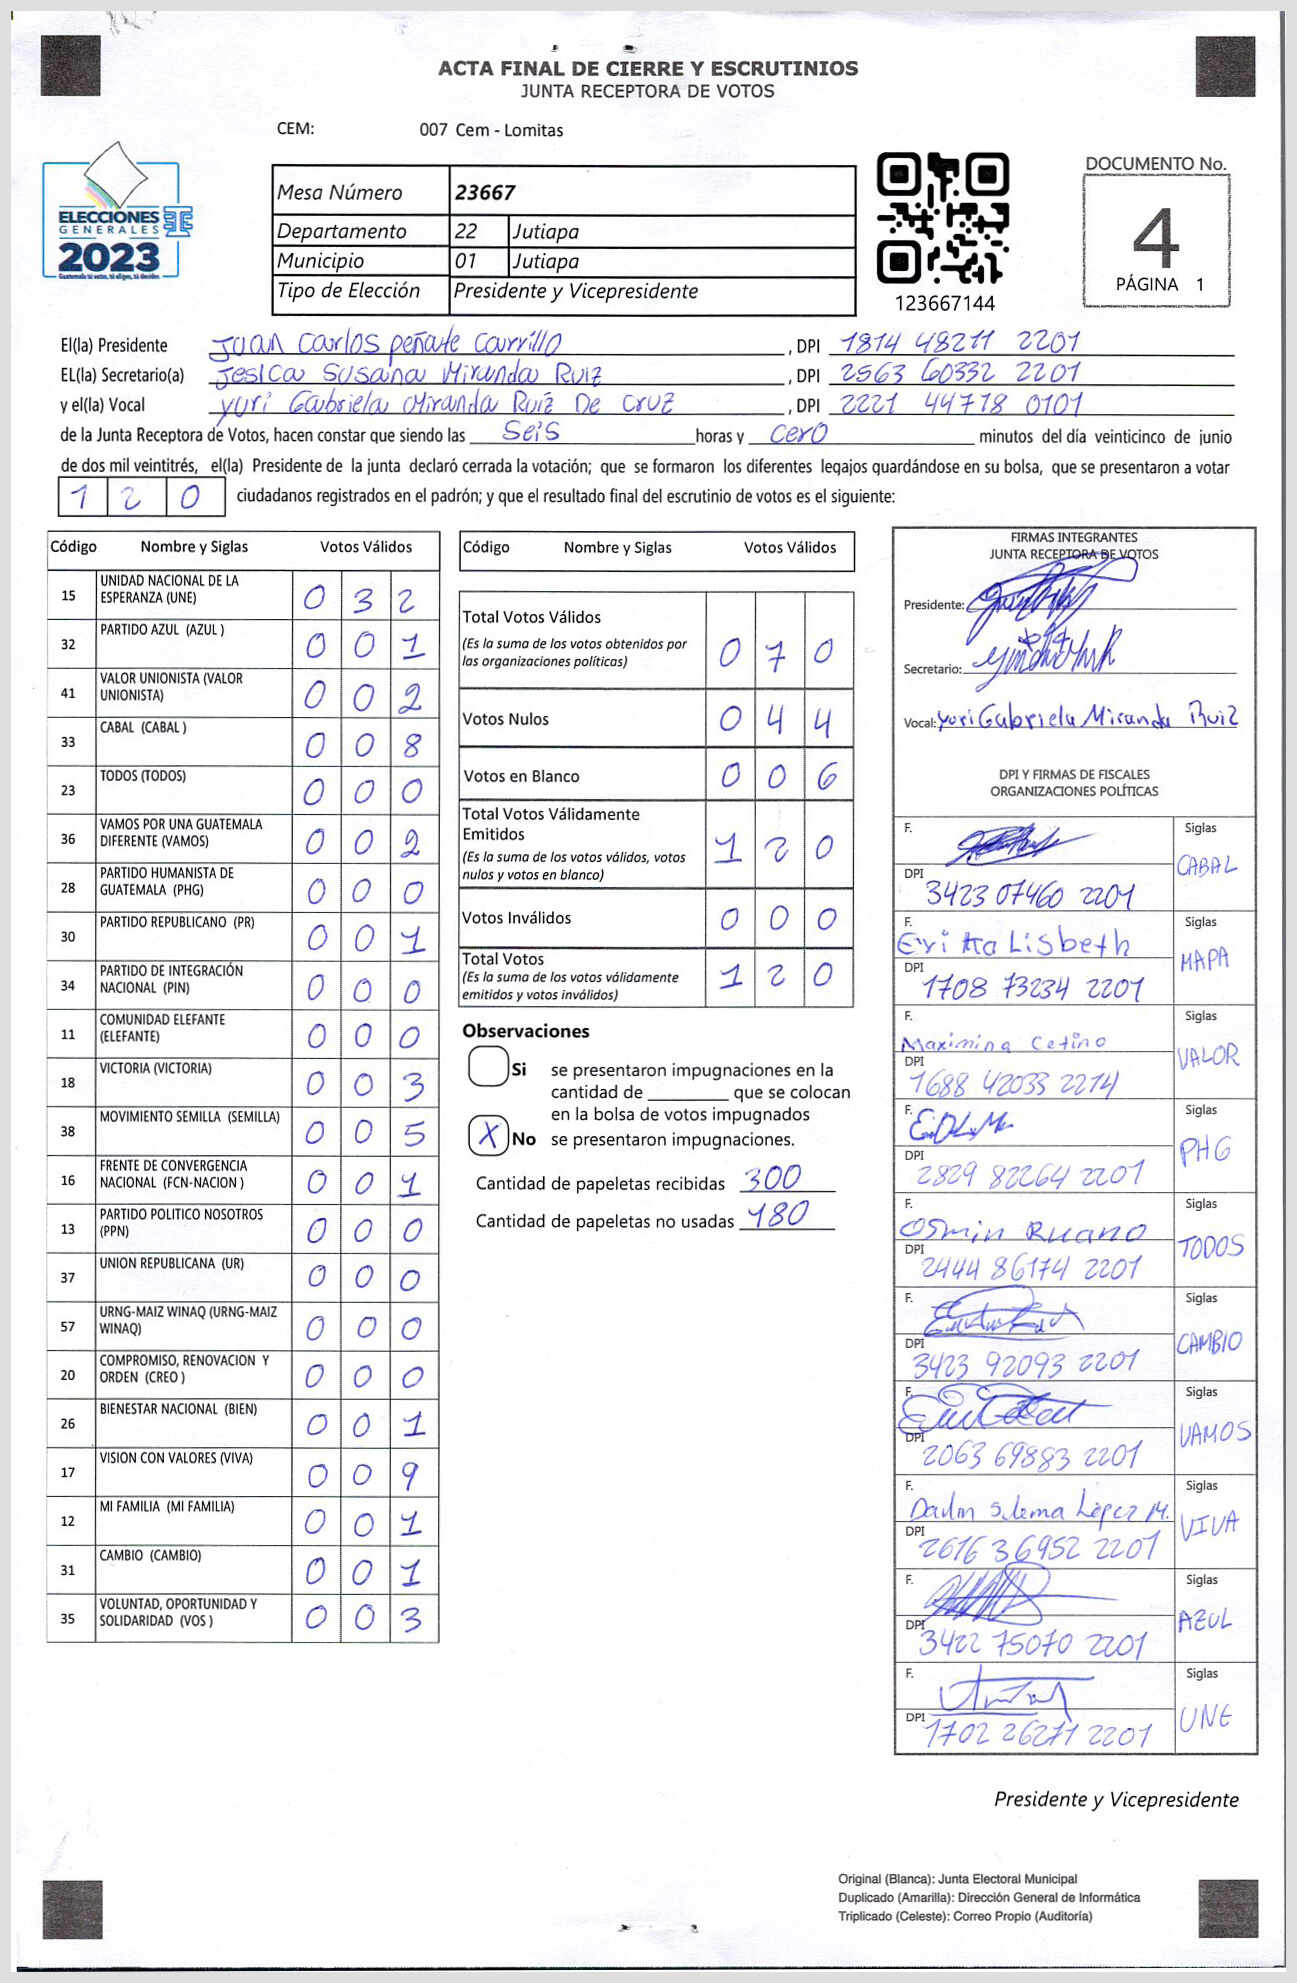 ACTA FINAL DE CIERRE Y ESCRUTINIOS
JUNTA RECEPTORA DE VOTOS
CEM: 007 Cem - Lomitas
ELECCIONES
GENERALES
2023
Mesa Número 23667
Departamento 22 Jutiapa
Municipio 01 Jutiapa
Tipo de Elección Presidente y Vicepresidente
123667144
DOCUMENTO No.
4
PÁGINA 1
El(la) Presidente Juan Carlos peñate Carrillo , DPI 1814 48211 2201
EL(la) Secretario(a) Jesica Susana Miranda Ruiz , DPI 2563 60332 2201
y el(la) Vocal yuri Gabriela Miranda Ruiz De Cruz , DPI 2221 44778 0101
de la Junta Receptora de Votos, hacen constar que siendo las Seis horas y Cero minutos del día veinticinco de junio
de dos mil veintitrés, el(la) Presidente de la junta declaró cerrada la votación; que se formaron los diferentes legajos guardándose en su bolsa, que se presentaron a votar
1 2 0 ciudadanos registrados en el padrón; y que el resultado final del escrutinio de votos es el siguiente:
Código Nombre y Siglas Votos Válidos
15 UNIDAD NACIONAL DE LA ESPERANZA (UNE) 0 3 2
32 PARTIDO AZUL (AZUL ) 0 0 1
41 VALOR UNIONISTA (VALOR UNIONISTA) 0 0 2
33 CABAL (CABAL ) 0 0 8
23 TODOS (TODOS) 0 0 0
36 VAMOS POR UNA GUATEMALA DIFERENTE (VAMOS) 0 0 2
28 PARTIDO HUMANISTA DE GUATEMALA (PHG) 0 0 0
30 PARTIDO REPUBLICANO (PR) 0 0 1
34 PARTIDO DE INTEGRACIÓN NACIONAL (PIN) 0 0 0
11 COMUNIDAD ELEFANTE (ELEFANTE) 0 0 0
18 VICTORIA (VICTORIA) 0 0 3
38 MOVIMIENTO SEMILLA (SEMILLA) 0 0 5
16 FRENTE DE CONVERGENCIA NACIONAL (FCN-NACION ) 0 0 1
13 PARTIDO POLITICO NOSOTROS (PPN) 0 0 0
37 UNION REPUBLICANA (UR) 0 0 0
57 URNG-MAIZ WINAQ (URNG-MAIZ WINAQ) 0 0 0
20 COMPROMISO, RENOVACION Y ORDEN (CREO ) 0 0 0
26 BIENESTAR NACIONAL (BIEN) 0 0 1
17 VISION CON VALORES (VIVA) 0 0 9
12 MI FAMILIA (MI FAMILIA) 0 0 1
31 CAMBIO (CAMBIO) 0 0 1
35 VOLUNTAD, OPORTUNIDAD Y SOLIDARIDAD (VOS ) 0 0 3
Código Nombre y Siglas Votos Válidos
Total Votos Válidos
(Es la suma de los votos obtenidos por
las organizaciones políticas) 0 7 0
Votos Nulos 0 4 4
Votos en Blanco 0 0 6
Total Votos Válidamente
Emitidos
(Es la suma de los votos válidos, votos
nulos y votos en blanco) 1 2 0
Votos Inválidos 0 0 0
Total Votos
(Es la suma de los votos válidamente
emitidos y votos inválidos) 1 2 0
Observaciones
Si se presentaron impugnaciones en la
cantidad de ________ que se colocan
en la bolsa de votos impugnados
X No se presentaron impugnaciones.
Cantidad de papeletas recibidas 300
Cantidad de papeletas no usadas 180
FIRMAS INTEGRANTES
JUNTA RECEPTORA DE VOTOS
Presidente:
Secretario:
Vocal: yuri Gabriela Miranda Ruiz
DPI Y FIRMAS DE FISCALES
ORGANIZACIONES POLÍTICAS
F. Siglas
DPI 3423 07460 2201 CABAL
F. Lisbeth Siglas
DPI 1708 73234 2201 MAPA
F. Maximina Cetino Siglas
DPI 1688 42033 2214 VALOR
F. Siglas
DPI 2829 82264 2201 PHG
F. Osmin Ruano Siglas
DPI 2444 86174 2201 TODOS
F. Siglas
DPI 3423 92093 2201 CAMBIO
F. Siglas
DPI 2063 69883 2201 VAMOS
F. López M. Siglas
DPI 2616 36952 2201 VIVA
F. Siglas
DPI 3422 75070 2201 AZUL
F. Siglas
DPI 1702 26271 2201 UNE
Presidente y Vicepresidente
Original (Blanca): Junta Electoral Municipal
Duplicado (Amarilla): Dirección General de Informática
Triplicado (Celeste): Correo Propio (Auditoría)